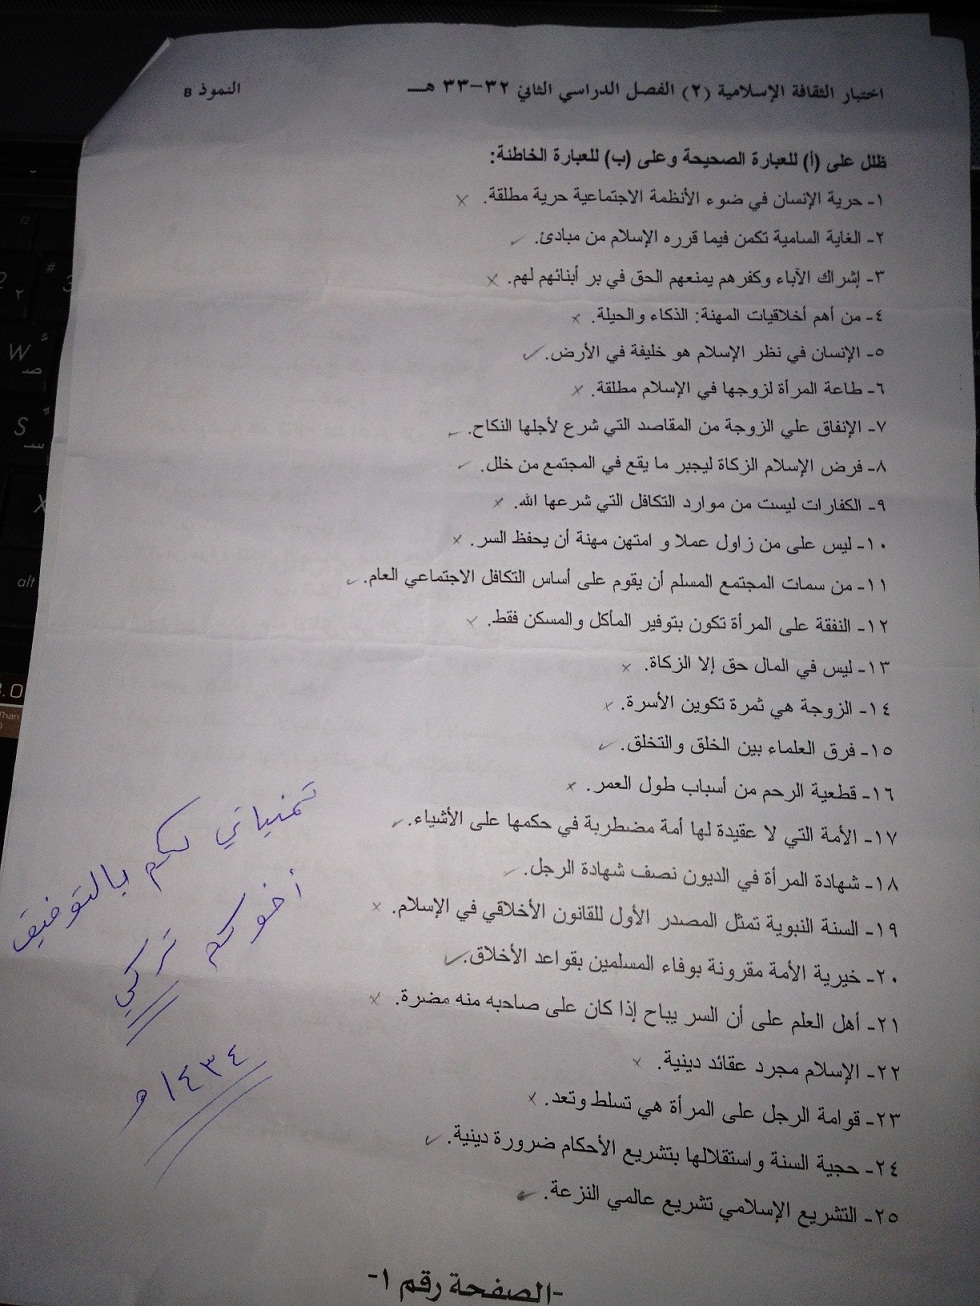 اختبار الثقافة الإسلامية (٢) الفصل الدراسي الثاني ٣٢-٣٣ هـ النموذ B
ظلل على (أ) للعبارة الصحيحة وعلى (ب) للعبارة الخاطئة:
١- حرية الإنسان في ضوء الأنظمة الاجتماعية حرية مطلقة. ×
٢- الغاية السامية تكمن فيما قرره الإسلام من مبادئ. ✓
٣- إشراك الآباء وكفرهم يمنعهم الحق في بر أبنائهم لهم. ×
٤- من أهم أخلاقيات المهنة: الذكاء والحيلة. ×
٥- الإنسان في نظر الإسلام هو خليفة في الأرض. ✓
٦- طاعة المرأة لزوجها في الإسلام مطلقة. ×
٧- الإنفاق علي الزوجة من المقاصد التي شرع لأجلها النكاح. ✓
٨- فرض الإسلام الزكاة ليجبر ما يقع في المجتمع من خلل. ✓
٩- الكفارات ليست من موارد التكافل التي شرعها الله. ×
١٠- ليس على من زاول عملا و امتهن مهنة أن يحفظ السر. ×
١١- من سمات المجتمع المسلم أن يقوم على أساس التكافل الاجتماعي العام. ✓
١٢- النفقة على المرأة تكون بتوفير المأكل والمسكن فقط. ×
١٣- ليس في المال حق إلا الزكاة. ×
١٤- الزوجة هي ثمرة تكوين الأسرة. ×
١٥- فرق العلماء بين الخلق والتخلق. ✓
١٦- قطعية الرحم من أسباب طول العمر. ×
١٧- الأمة التي لا عقيدة لها أمة مضطربة في حكمها على الأشياء. ✓
١٨- شهادة المرأة في الديون نصف شهادة الرجل. ✓
١٩- السنة النبوية تمثل المصدر الأول للقانون الأخلاقي في الإسلام. ×
٢٠- خيرية الأمة مقرونة بوفاء المسلمين بقواعد الأخلاق. ✓
٢١- أهل العلم على أن السر يباح إذا كان على صاحبه منه مضرة. ×
٢٢- الإسلام مجرد عقائد دينية. ×
٢٣- قوامة الرجل على المرأة هي تسلط وتعد. ×
٢٤- حجية السنة واستقلالها بتشريع الأحكام ضرورة دينية. ✓
٢٥- التشريع الإسلامي تشريع عالمي النزعة. ✓
تمنياتي لكم بالتوفيق
أخوكم تركي
١٤٣٤ هـ
-الصفحة رقم ١-
W
S
X
alt